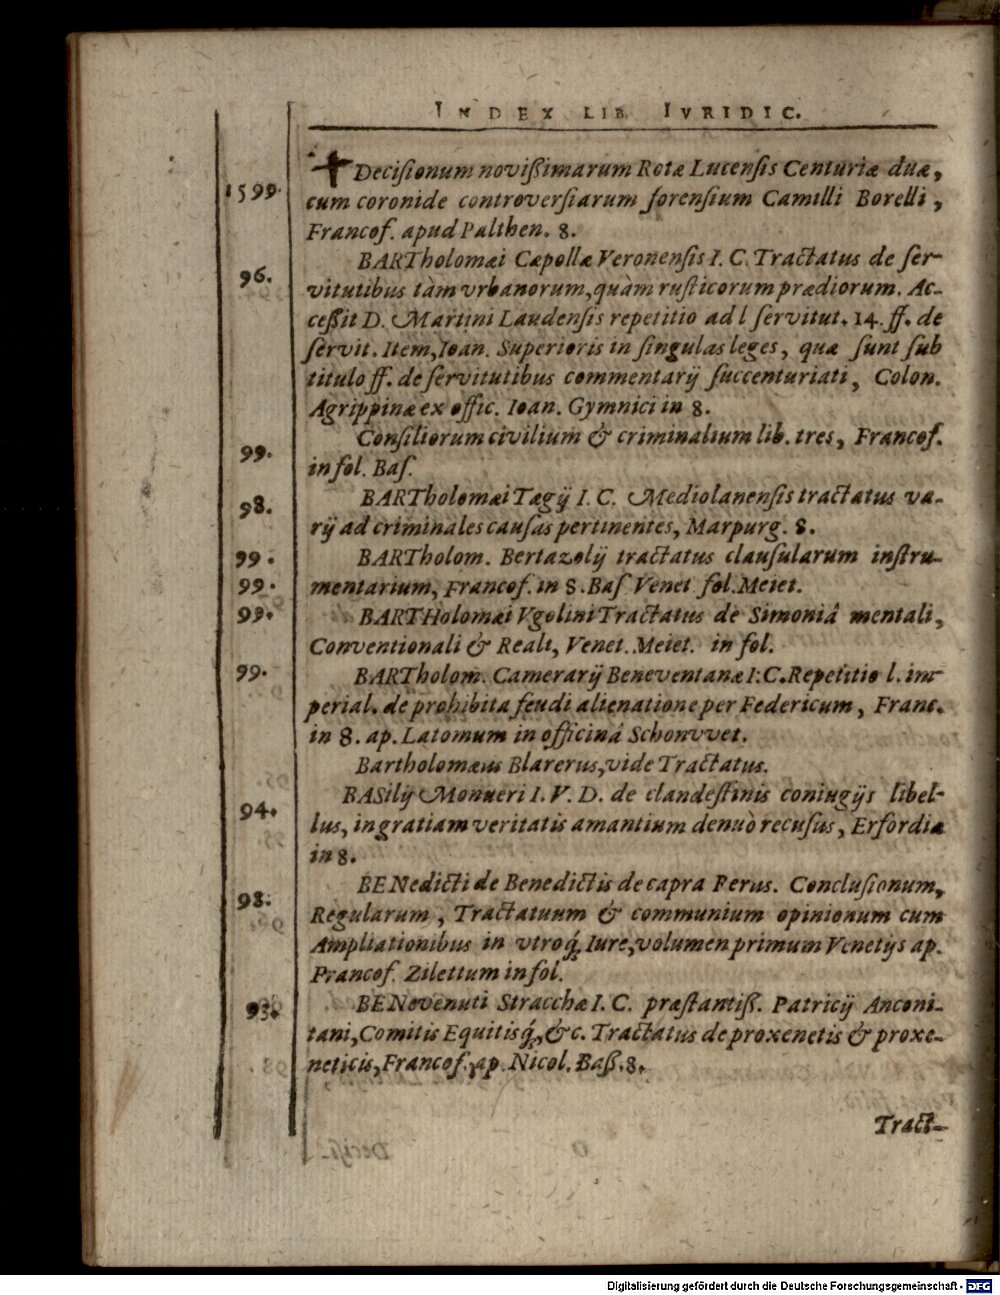 INDEX LIB. IVRIDIC.
1599. ✝ Deciſionum noviſſimarum Rotæ Lucenſis Centuriæ duæ,
cum coronide controverſiarum forenſium Camilli Borelli,
Francof. apud Palthen. 8.
96. BARTholomæi Cæpollæ Veronenſis I. C. Tractatus de ſer-
vitutibus tàm vrbanorum, quàm ruſticorum prædiorum. Ac-
ceſſit D. Martini Laudenſis repetitio ad l ſervitut. 14. ff. de
ſervit. Item, Ioan. Superioris in ſingulas leges, quæ ſunt ſub
titulo ff. de ſervitutibus commentarij ſuccenturiati, Colon.
Agrippinæ ex offic. Ioan. Gymnici in 8.
99. Conſiliorum civilium & criminalium lib. tres, Francof.
in fol. Baſ.
98. BARTholomæi Tægij I. C. Mediolanenſis tractatus va-
rij ad criminales cauſas pertinentes, Marpurg. 8.
99. BARTholom. Bertazolij tractatus clauſularum inſtru-
99. mentarium, Francof. in 8. Baſ Venet fol. Meiet.
93. BARTHolomæi Vgolini Tractatus de Simoniâ mentali,
Conventionali & Reali, Venet. Meiet. in fol.
99. BARTholom. Camerarij Beneventanæ I. C. Repetitio l. im-
perial. de prohibita feudi alienatione per Federicum, Franc.
in 8. ap. Latomum in officinâ Schonvvet.
Bartholomæus Blarerus, vide Tractatus.
94. BASilij Monneri I. V. D. de clandeſtinis coniugijs libel-
lus, in gratiam veritatis amantium denuò recuſus, Erfordiæ
in 8.
98. BENedicti de Benedictis de capra Perus. Concluſionum,
Regularum, Tractatuum & communium opinionum cum
Ampliationibus in vtroq́, Iure, volumen primum Venetijs ap.
Francof. Zilettum in fol.
93. BENevenuti Stracchæ I. C. præſtantiſſ. Patricij Anconi-
tani, Comitis Equitisq́, &c. Tractatus de proxenetis & proxe-
neticis, Francof. ap. Nicol. Baſſ. 8.
Tract-
Digitalisierung gefördert durch die Deutsche Forschungsgemeinschaft - DFG